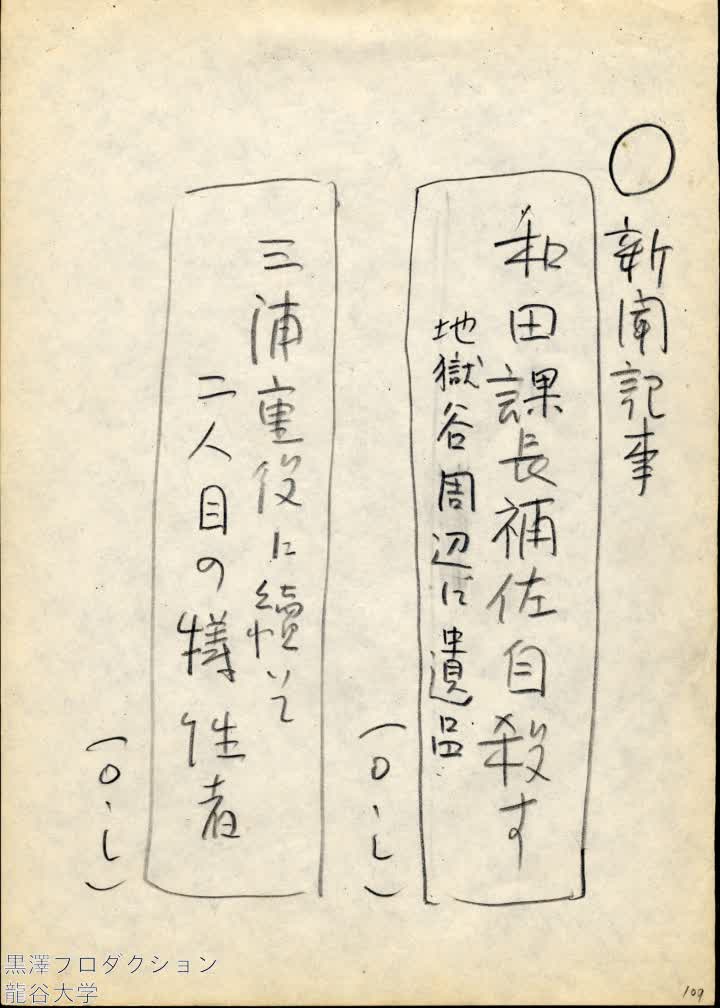 ○ 新聞記事
和田課長補佐自殺す
地獄谷周辺に遺品
(O・L)
三浦重役に続いて
二人目の犠牲者
(O・L)
黒澤プロダクション
龍谷大学
109